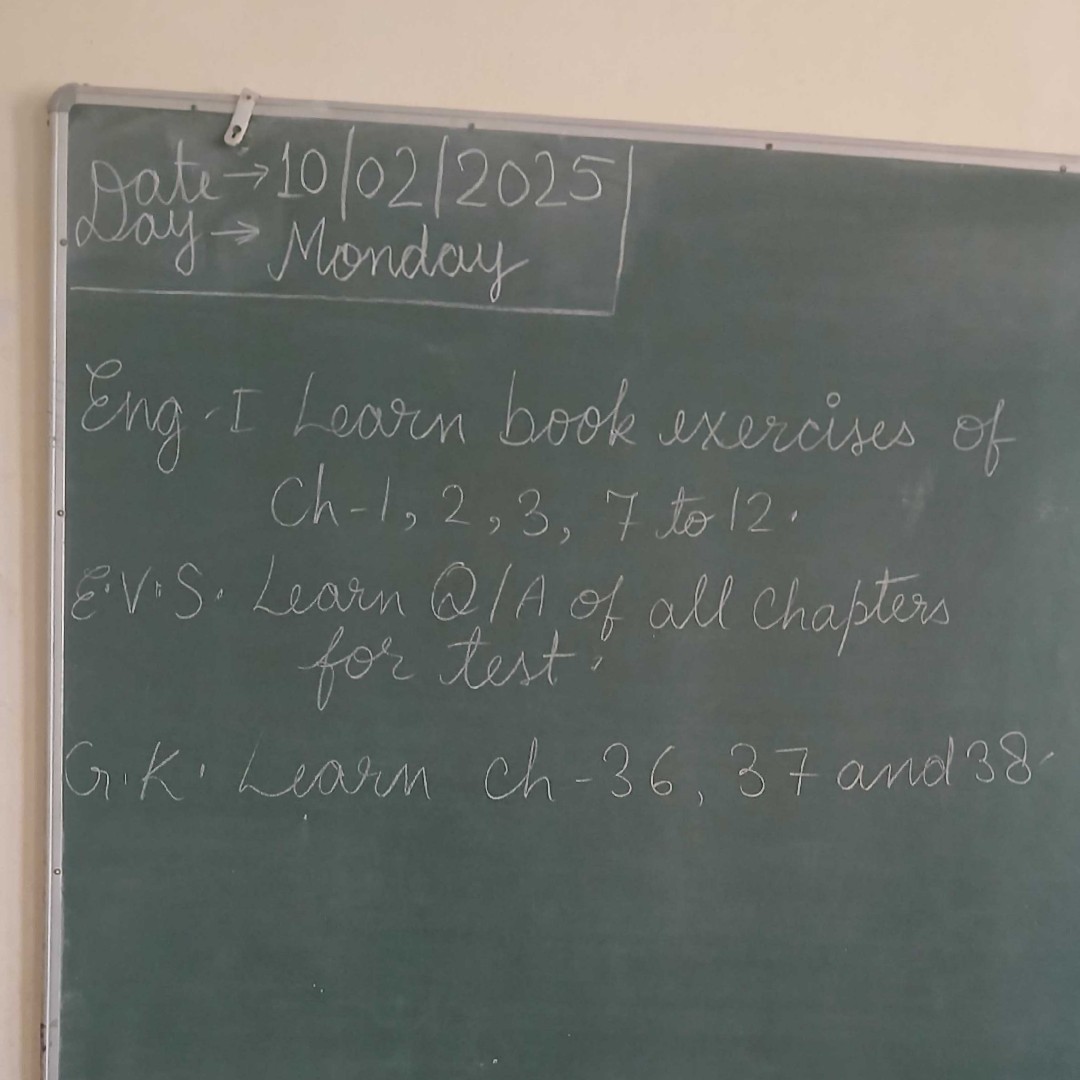 Date → 10/02/2025
Day → Monday
Eng-I Learn book exercises of
Ch-1, 2, 3, 7 to 12.
E.V.S. Learn Q/A of all chapters
for test.
G.K. Learn ch-36, 37 and 38.